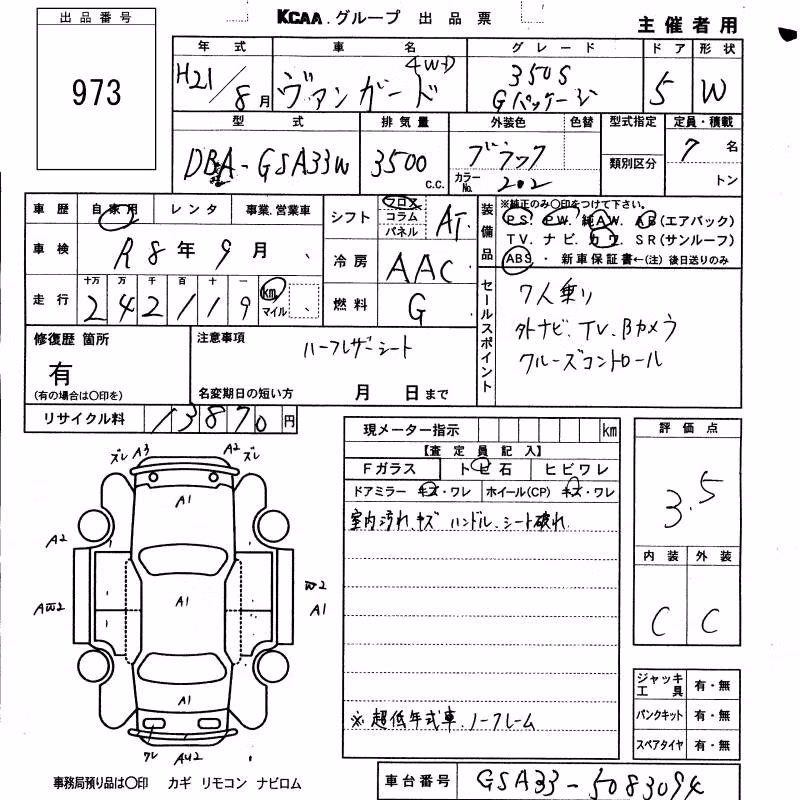 出品番号
973
KCAA グループ 出品票
主催者用
年式 車名 グレード ドア 形状
H21/8月 ヴァンガード 4WD 350S Gパッケージ 5 W
型式 排気量 外装色 色替 型式指定 定員・積載
DBA-GSA33W 3500 c.c. ブラック カラーNo. 202 類別区分 7名 トン
車歴 自家用 レンタ 事業.営業車
車検 R8年9月
走行 十万 万 千 百 十 一
242119 km マイル
シフト フロア コラム パネル AT
冷房 AAC
燃料 G
装備品
※純正のみ〇印をつけて下さい。
PS. PW. 純AW. AB(エアバック)
TV. ナビ. カワ. SR(サンルーフ)
ABS ・ 新車保証書←(注) 後日送りのみ
セールスポイント
7人乗り
外ナビ、TV、Bカメラ
クルーズコントロール
修復歴 箇所
有
(有の場合は〇印を)
注意事項
ハーフレザーシート
名変期日の短い方 月 日まで
リサイクル料 13870円
現メーター指示 km
【査定員記入】
Fガラス トビ石 ヒビワレ
ドアミラー キズ・ワレ ホイール(CP) キズ・ワレ
室内汚れ、キズ ハンドル、シート破れ
※超低年式車、ノークレーム
評価点
3.5
内装 外装
C C
ジャッキ工具 有・無
パンクキット 有・無
スペアタイヤ 有・無
ズレ A3 A2 ズレ
A1
A2
A1
AW2
W2
A1
A1
ワレ AU2
事務局預り品は〇印 カギ リモコン ナビロム
車台番号 GSA33-5083094